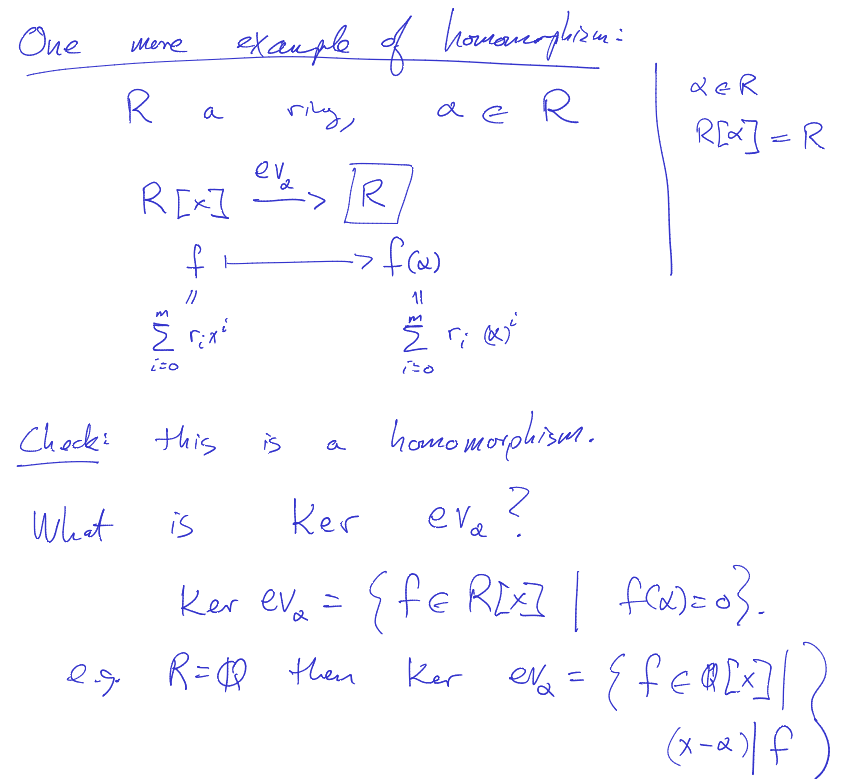 One more example of homomorphism:
R a ring, α ∈ R
α ∈ R
R[α] = R
R[x] —ev_α→ R
f ⟼ f(α)
= =
∑_{i=0}^{m} r_i x^i ∑_{i=0}^{m} r_i (α)^i
Check: this is a homomorphism.
What is Ker ev_α?
Ker ev_α = {f ∈ R[x] | f(α) = 0}.
e.g. R = ℚ then Ker ev_α = {f ∈ ℚ[x] |
(x-α) | f}